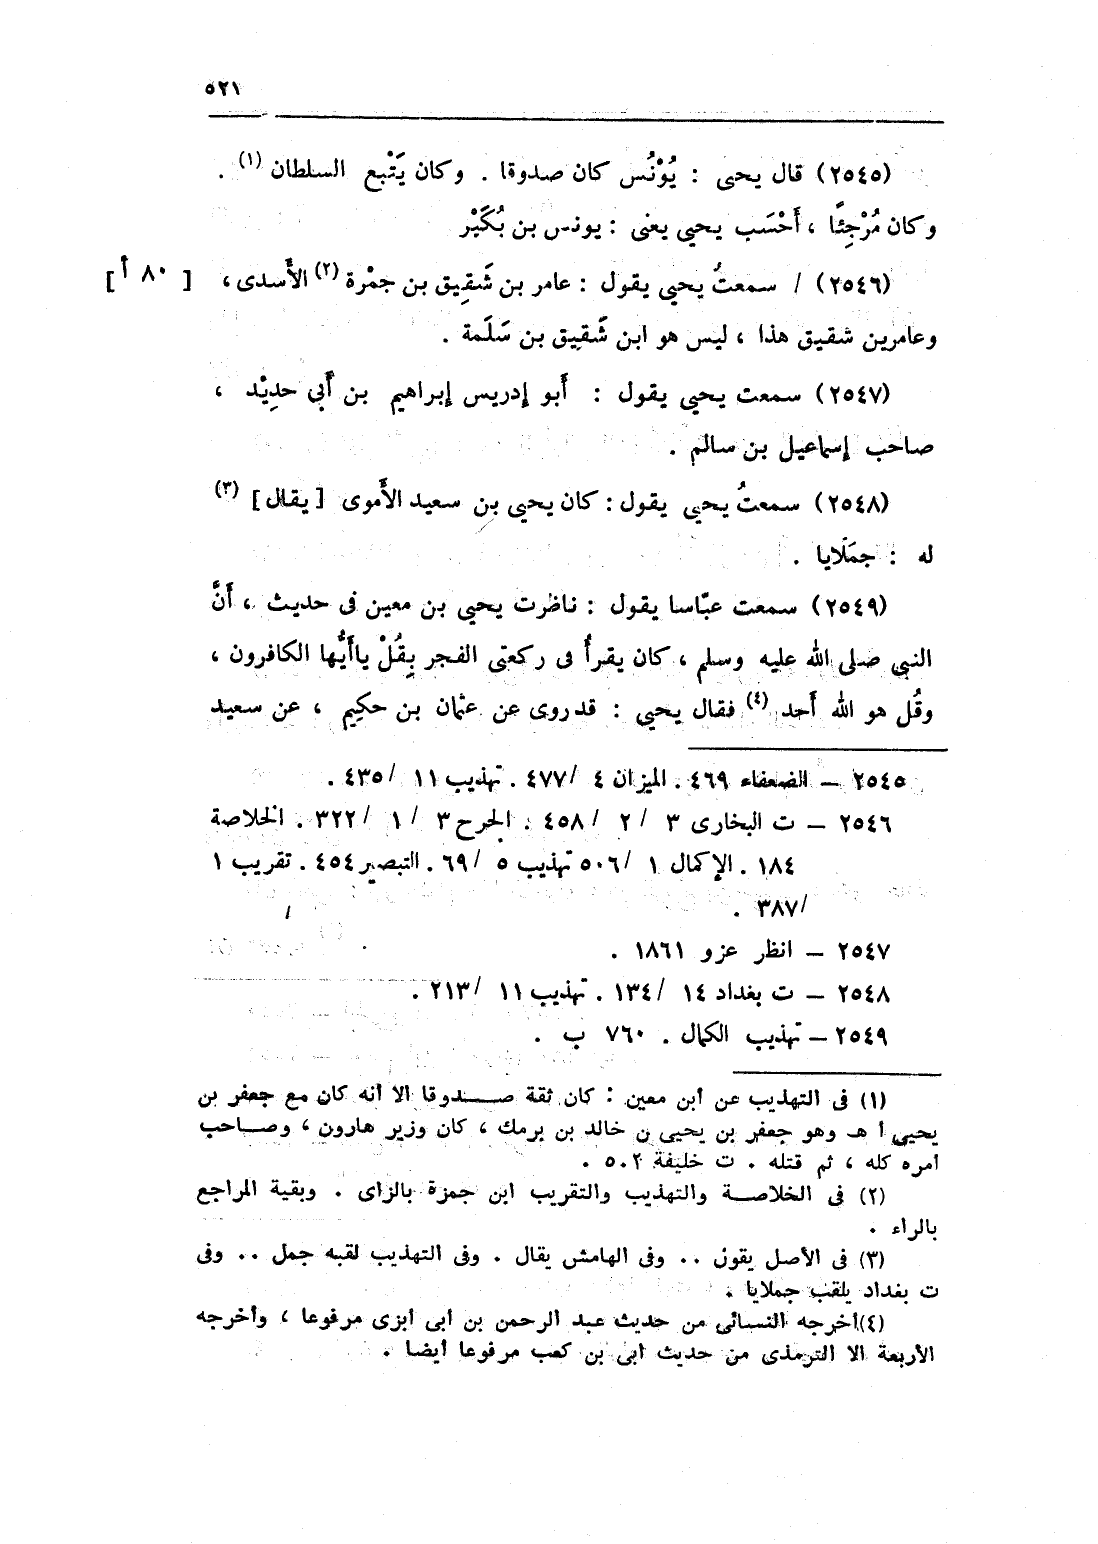 ٥٢١
(٢٥٤٥) قال يحيى : يُوْنُس كان صدوقا . وكان يَتْبع السلطان (١) .
وكان مُرْجِئًا ، أَحْسَب يحيي يعنى : يونس بن بُكَيْر
(٢٥٤٦) / سمعتُ يحيي يقول : عامر بن شَقِيق بن جمْرة (٢) الأَسدى ، [ ٨٠ أ ]
وعامربن شقيق هذا ، ليس هو ابن شَقِيق بن سَلَمة .
(٢٥٤٧) سمعت يحيي يقول : أَبو إدريس إبراهيم بن أَبي حدِيْد ،
صاحب إسماعيل بن سالم .
(٢٥٤٨) سمعتُ يحيي يقول : كان يحيي بن سعيد الأَموى [ يقال ] (٣)
له : جمَلَايا .
(٢٥٤٩) سمعت عبّاسا يقول : ناظرت يحيي بن معين فى حديث ، أَنَّ
النبي صلى الله عليه وسلم ، كان يقرأُ فى ركعتى الفجر بِقُلْ ياأَيُّها الكافرون ،
وقُل هو الله أَحد (٤) فقال يحيي : قدروى عن عثمان بن حكِيم ، عن سعيد
٢٥٤٥ – الضعفاء ٤٦٩ . الميزان ٤ /٤٧٧ . تهذيب ١١ /٤٣٥ .
٢٥٤٦ – ت البخارى ٣ /٢ /٤٥٨ . الجرح ٣ /١ /٣٢٢ . الخلاصة
١٨٤ . الإكمال ١ /٥٠٦ تهذيب ٥ /٦٩ . التبصير ٤٥٤ . تقريب ١
/٣٨٧ .
٢٥٤٧ – انظر عزو ١٨٦١ .
٢٥٤٨ – ت بغداد ١٤ /١٣٤ . تهذيب ١١ /٢١٣ .
٢٥٤٩ – تهذيب الكمال . ٧٦٠ ب .
(١) فى التهذيب عن ابن معين : كان ثقة صدوقا الا أنه كان مع جعفر بن
يحيي أ هـ وهو جعفر بن يحيى ن خالد بن برمك ، كان وزير هارون ، وصاحب
امره كله ، ثم قتله . ت خليفة ٥٠٢ .
(٢) فى الخلاصة والتهذيب والتقريب ابن جمزة بالزاى . وبقية المراجع
بالراء .
(٣) فى الأصل يقول .. وفى الهامش يقال . وفى التهذيب لقبه جمل .. وفى
ت بغداد يلقب جملايا .
(٤) أخرجه النسائى من حديث عبد الرحمن بن ابى ابزى مرفوعا ، وأخرجه
الأربعة الا الترمذى من حديث ابى بن كعب مرفوعا أيضا .